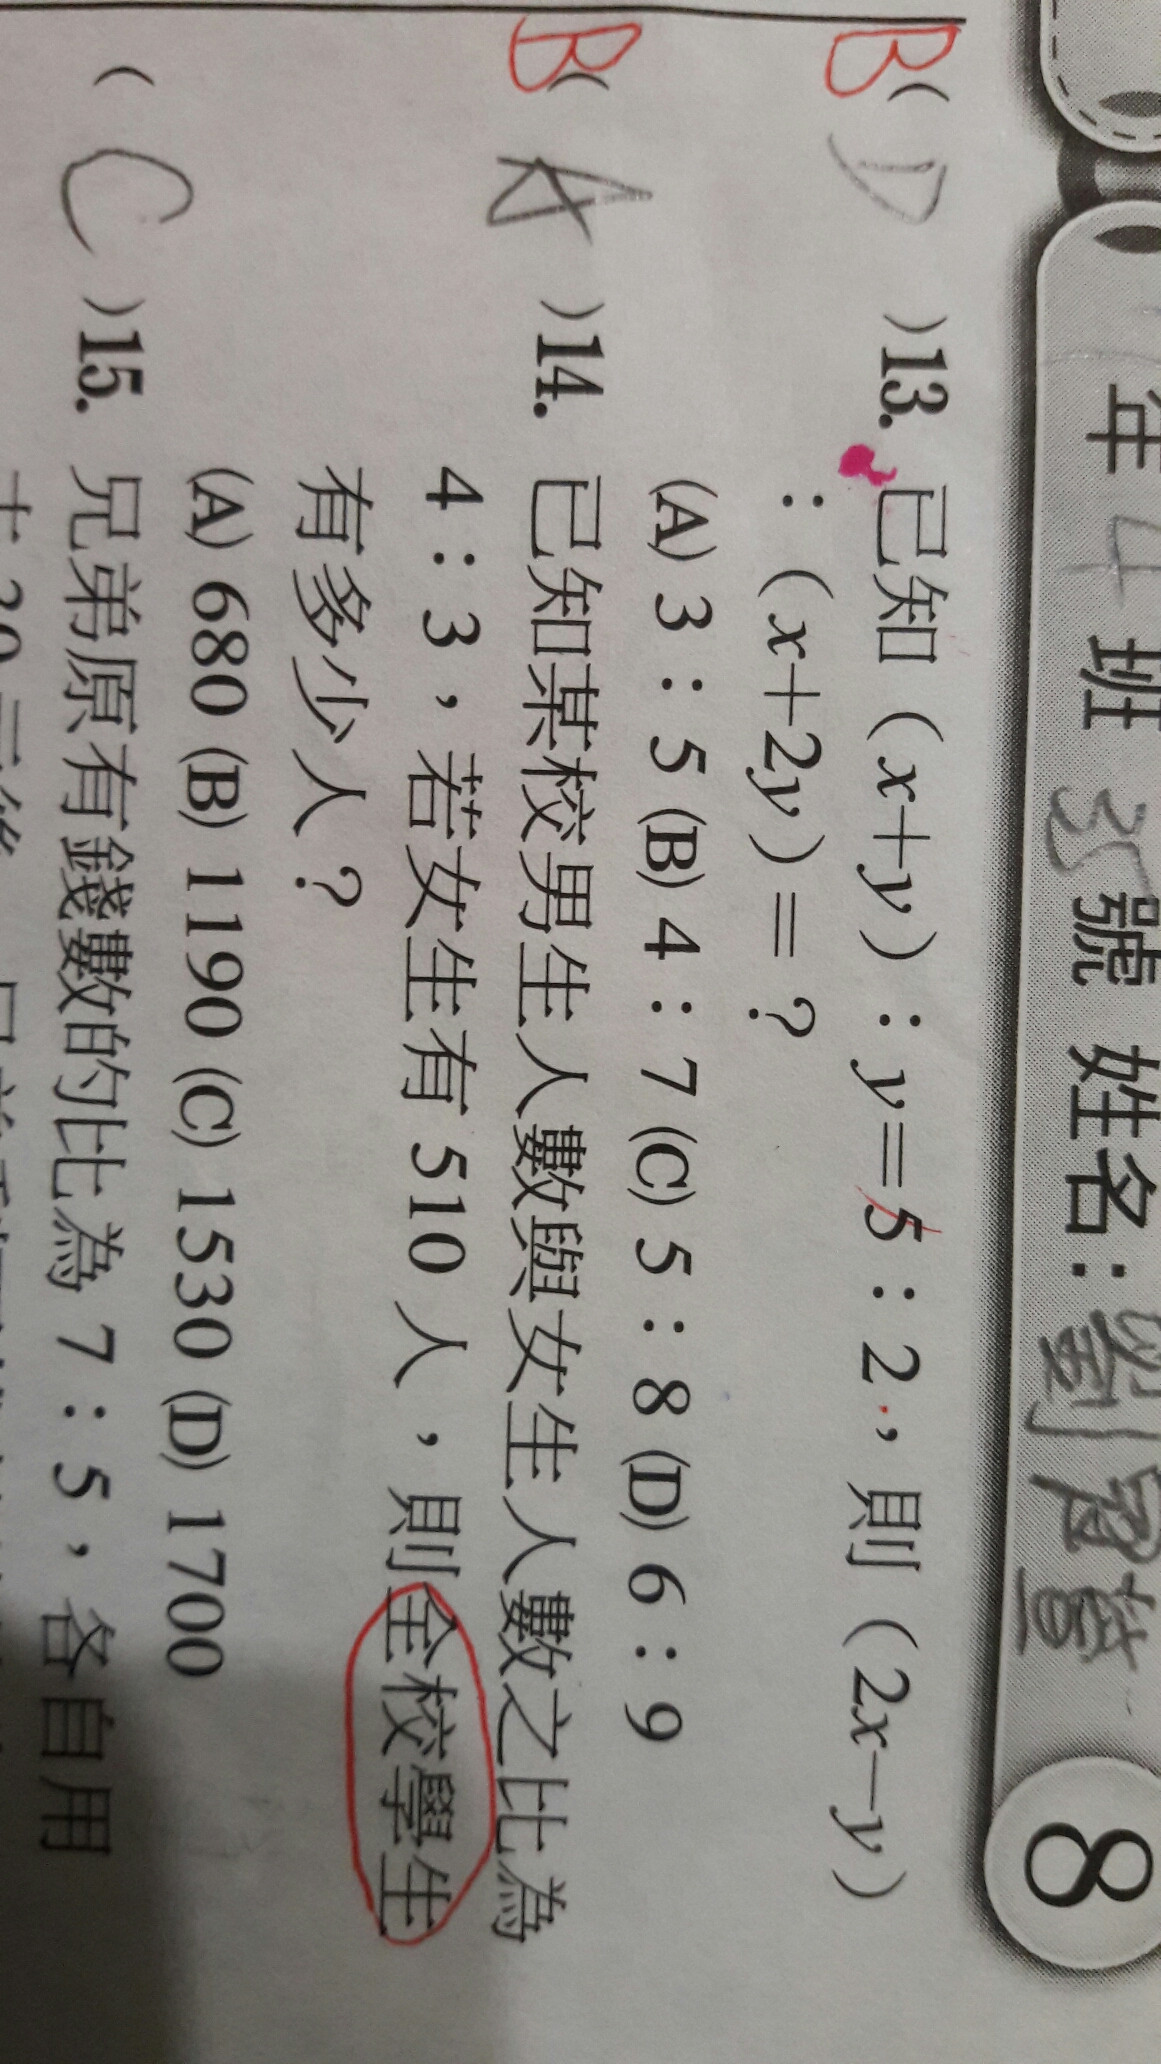 年4班35號 姓名：劉
8
B(D)13. 已知（x+y）：y=5：2，則（2x−y）
：（x+2y）＝？
(A) 3：5 (B) 4：7 (C) 5：8 (D) 6：9
B(A)14. 已知某校男生人數與女生人數之比為
4：3，若女生有 510 人，則全校學生
有多少人？
(A) 680 (B) 1190 (C) 1530 (D) 1700
(C)15. 兄弟原有錢數的比為 7：5，各自用